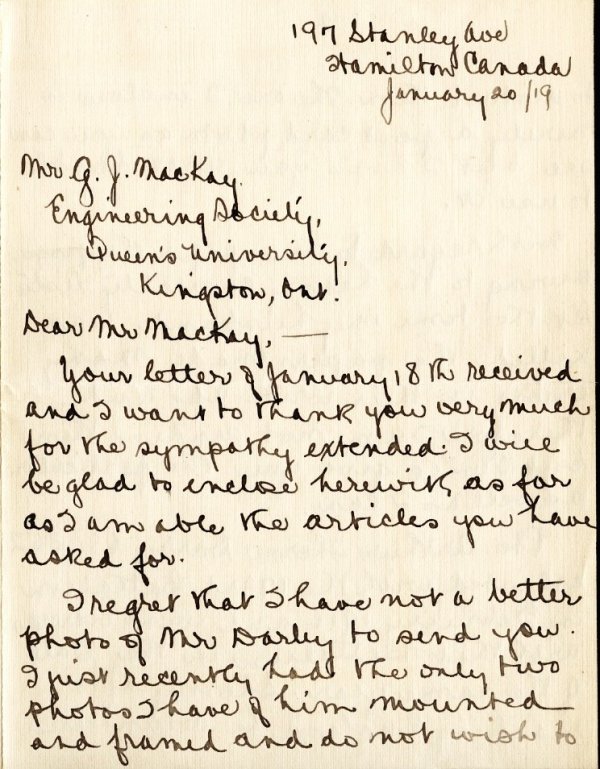 197 Stanley Ave
Hamilton Canada
January 20/19
Mr G. J. MacKay.
Engineering Society,
Queen's University,
Kingston, Ont.
Dear Mr MacKay, —
Your letter of January 18th received
and I want to thank you very much
for the sympathy extended. I will
be glad to enclose herewith, as far
as I am able the articles you have
asked for.
I regret that I have not a better
photo of Mr Darley to send you.
I just recently had the only two
photos I have of him mounted
and framed and do not wish to